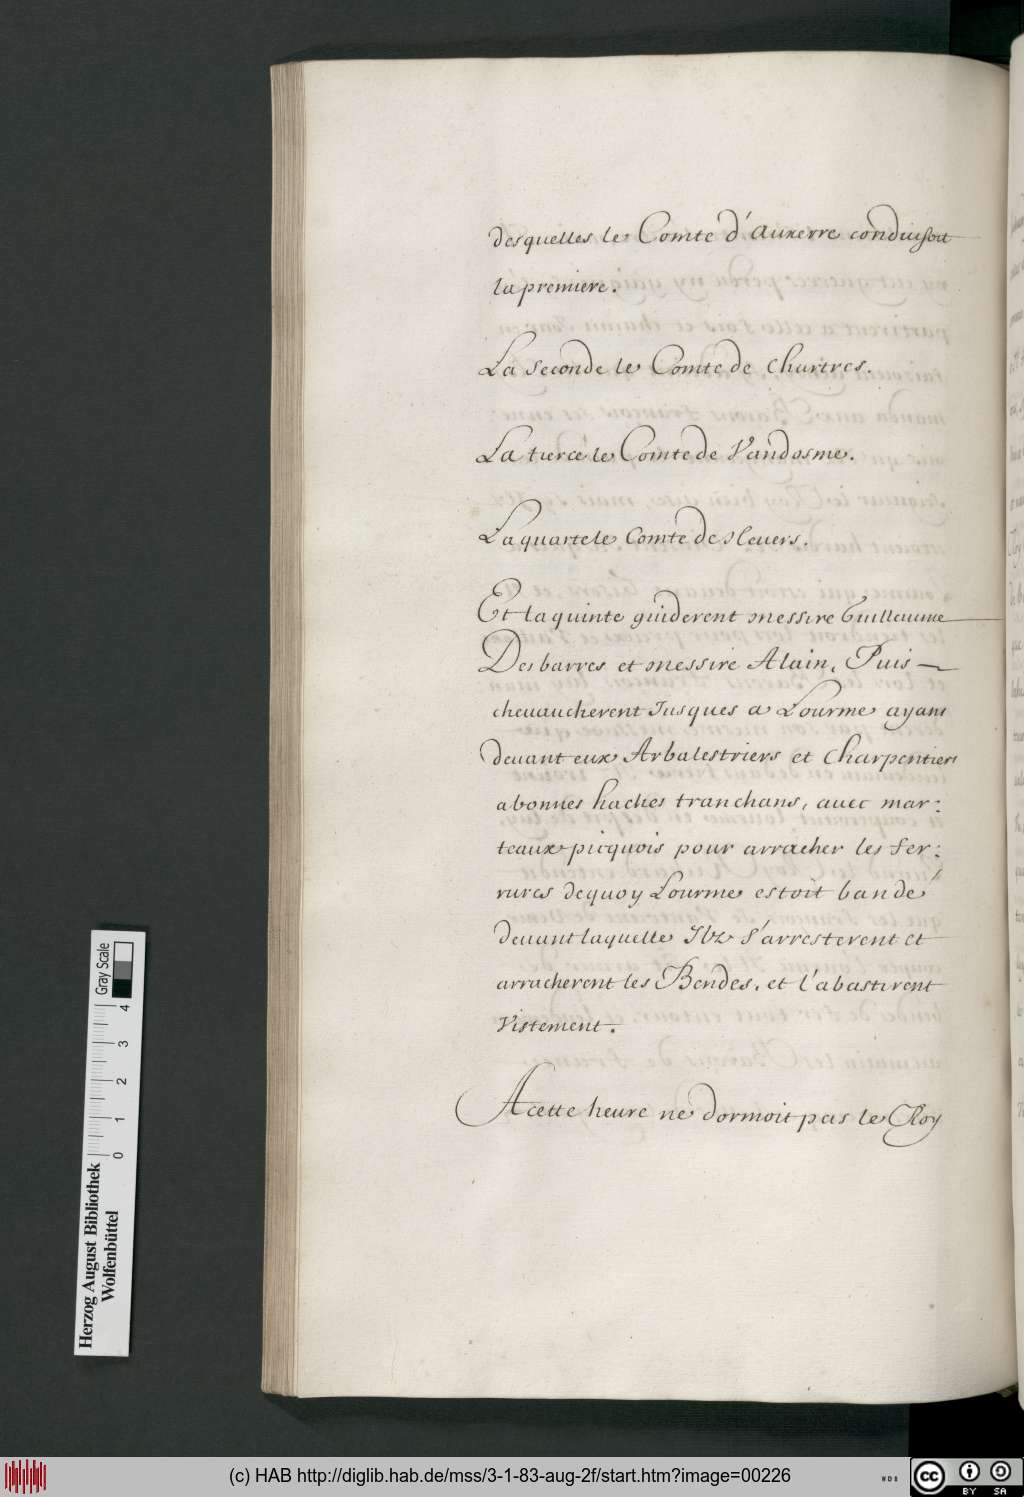 desquelles le Comte d'Auxerre conduisoit
la premiere.
La seconde le Comte de Chartres.
La tierce le Comte de Vandosme.
La quarte le Comte de Nevers.
Et la quinte guiderent messire Guilleaume
Des barres et messire Alain. Puis —
chevaucherent Jusques a Lourme ayant
devant eux Arbalestriers et Charpentiers
a bonnes haches tranchans, avec mar:
teaux picquois pour arracher les fer:
rures dequoy Lourme estoit bandé
devant laquelle Ilz s'arresterent et
arracherent les Bendes, et l'abastirent
Vistement.
A cette heure ne dormoit pas le Roy
Gray Scale
0 1 2 3 4
Herzog August Bibliothek
Wolfenbüttel
(c) HAB http://diglib.hab.de/mss/3-1-83-aug-2f/start.htm?image=00226
WDB
cc
BY SA